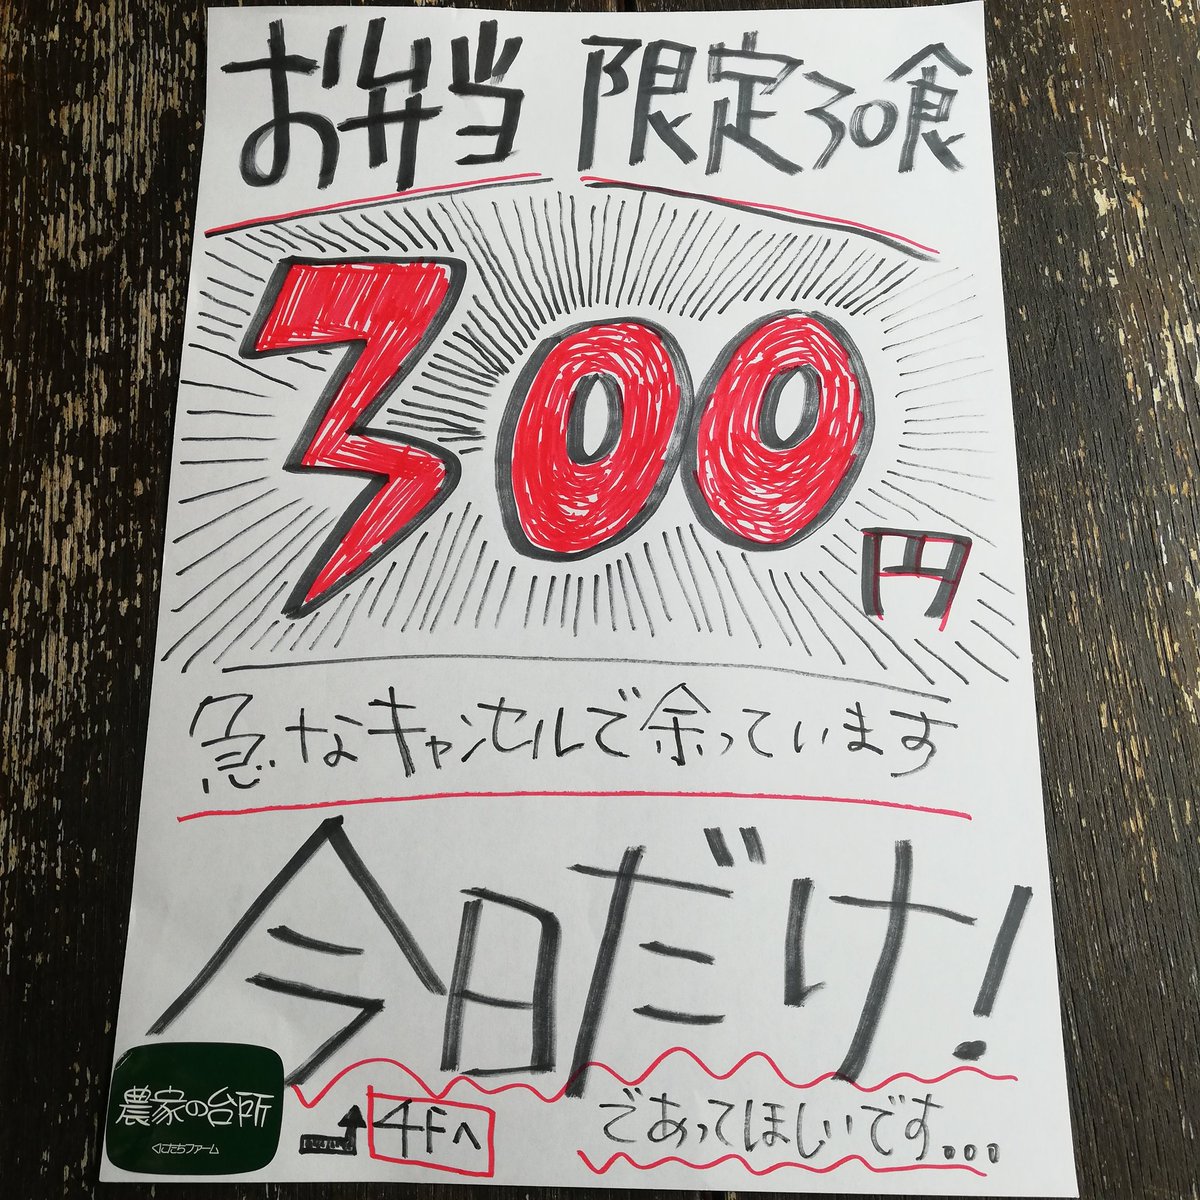 お弁当 限定30食
300円
急なキャンセルで余っています
今日だけ!
であってほしいです...
4Fへ
農家の台所
くにたちファーム